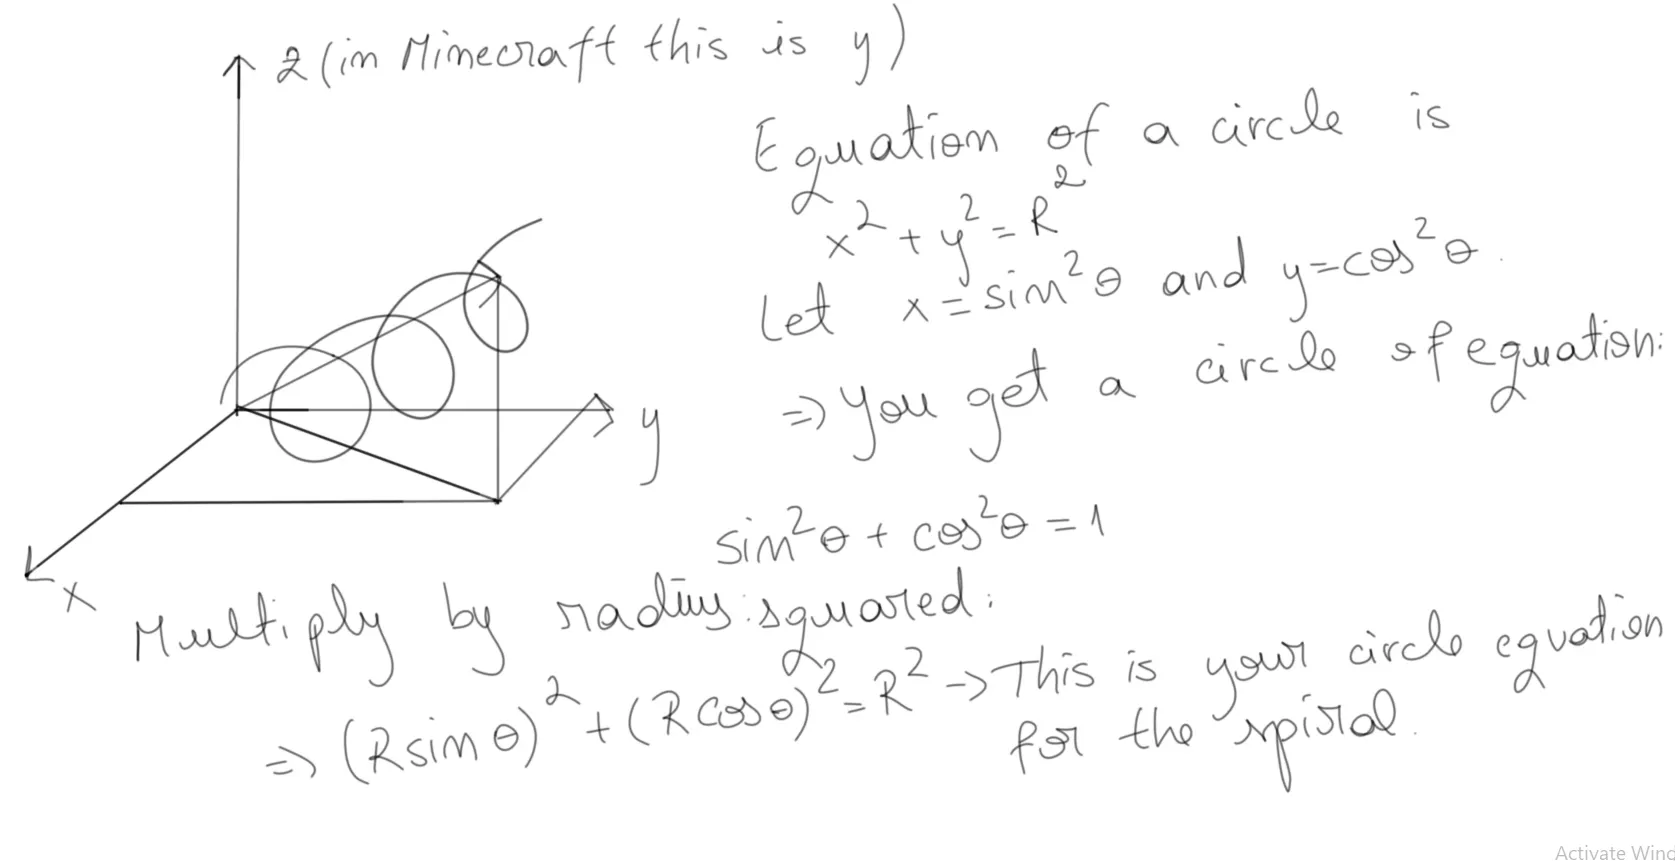 z (in Minecraft this is y)
Equation of a circle is
x² + y² = R²
Let x = sin²θ and y = cos²θ.
⇒ You get a circle of equation:
y
sin²θ + cos²θ = 1
x
Multiply by radius squared:
⇒ (R sin θ)² + (R cos θ)² = R² → This is your circle equation
for the spiral.
Activate Wind